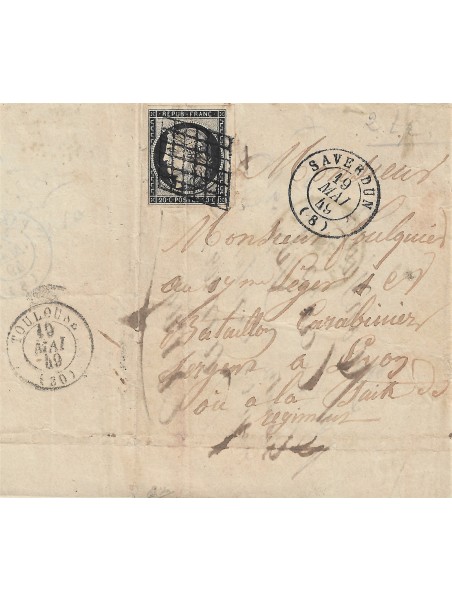 REPUB. FRANC.
20 c POSTES 20 c
SAVERDUN
19
MAI
49
(8)
Monsieur
Monsieur Foulquier
au 17me Léger
Bataillon Carabinier
Sergent à Lyon
où à la Suite du
régiment
TOULOUSE
19
MAI
49
(30)